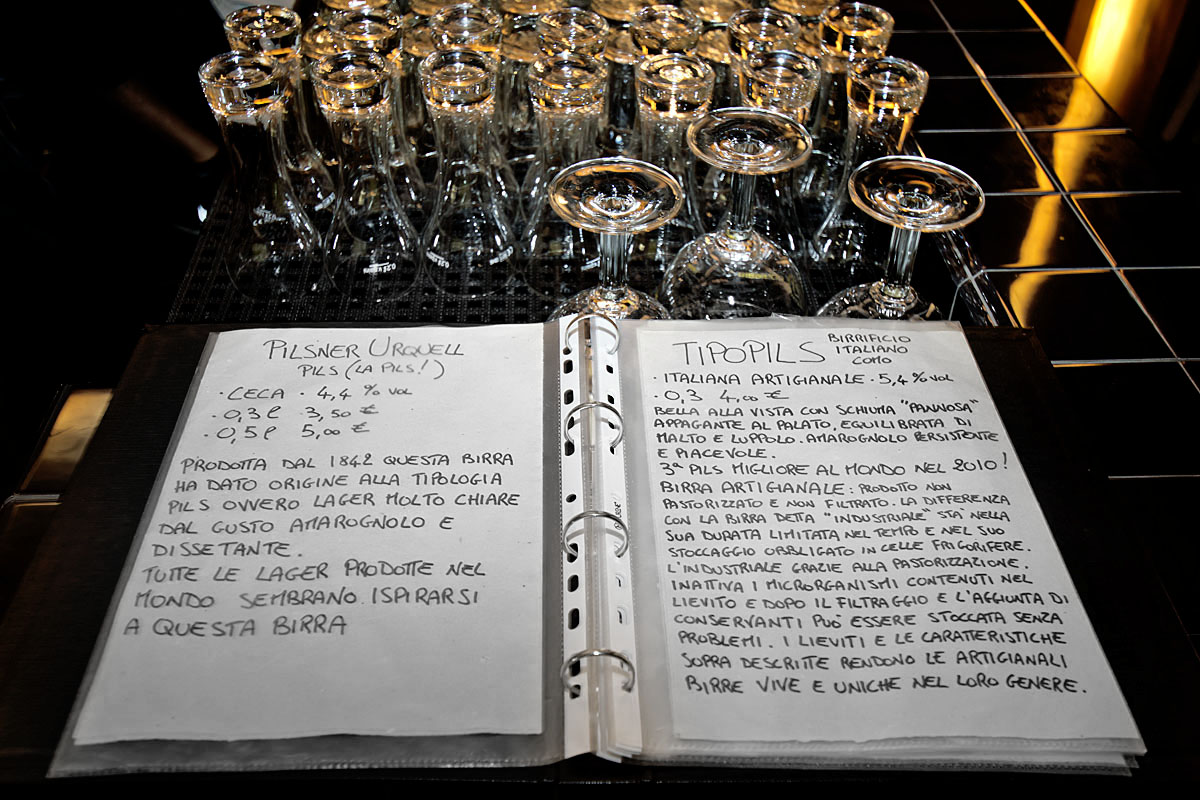 PILSNER URQUELL
PILS (LA PILS!)
· CECA · 4,4 % VOL
· 0,3 l 3,50 €
· 0,5 l 5,00 €
PRODOTTA DAL 1842 QUESTA BIRRA
HA DATO ORIGINE ALLA TIPOLOGIA
PILS OVVERO LAGER MOLTO CHIARE
DAL GUSTO AMAROGNOLO E
DISSETANTE.
TUTTE LE LAGER PRODOTTE NEL
MONDO SEMBRANO ISPIRARSI
A QUESTA BIRRA
TIPOPILS
BIRRIFICIO
ITALIANO
COMO
· ITALIANA ARTIGIANALE · 5,4 % VOL
· 0,3 4,00 €
BELLA ALLA VISTA CON SCHIUMA "PANNOSA"
APPAGANTE AL PALATO, EQUILIBRATA DI
MALTO E LUPPOLO. AMAROGNOLO PERSISTENTE
E PIACEVOLE.
3ª PILS MIGLIORE AL MONDO NEL 2010!
BIRRA ARTIGIANALE: PRODOTTO NON
PASTORIZZATO E NON FILTRATO. LA DIFFERENZA
CON LA BIRRA DETTA "INDUSTRIALE" STA' NELLA
SUA DURATA LIMITATA NEL TEMPO E NEL SUO
STOCCAGGIO OBBLIGATO IN CELLE FRIGORIFERE.
L'INDUSTRIALE GRAZIE ALLA PASTORIZZAZIONE.
INATTIVA I MICRORGANISMI CONTENUTI NEL
LIEVITO E DOPO IL FILTRAGGIO E L'AGGIUNTA DI
CONSERVANTI PUO' ESSERE STOCCATA SENZA
PROBLEMI. I LIEVITI E LE CARATTERISTICHE
SOPRA DESCRITTE RENDONO LE ARTIGIANALI
BIRRE VIVE E UNICHE NEL LORO GENERE.